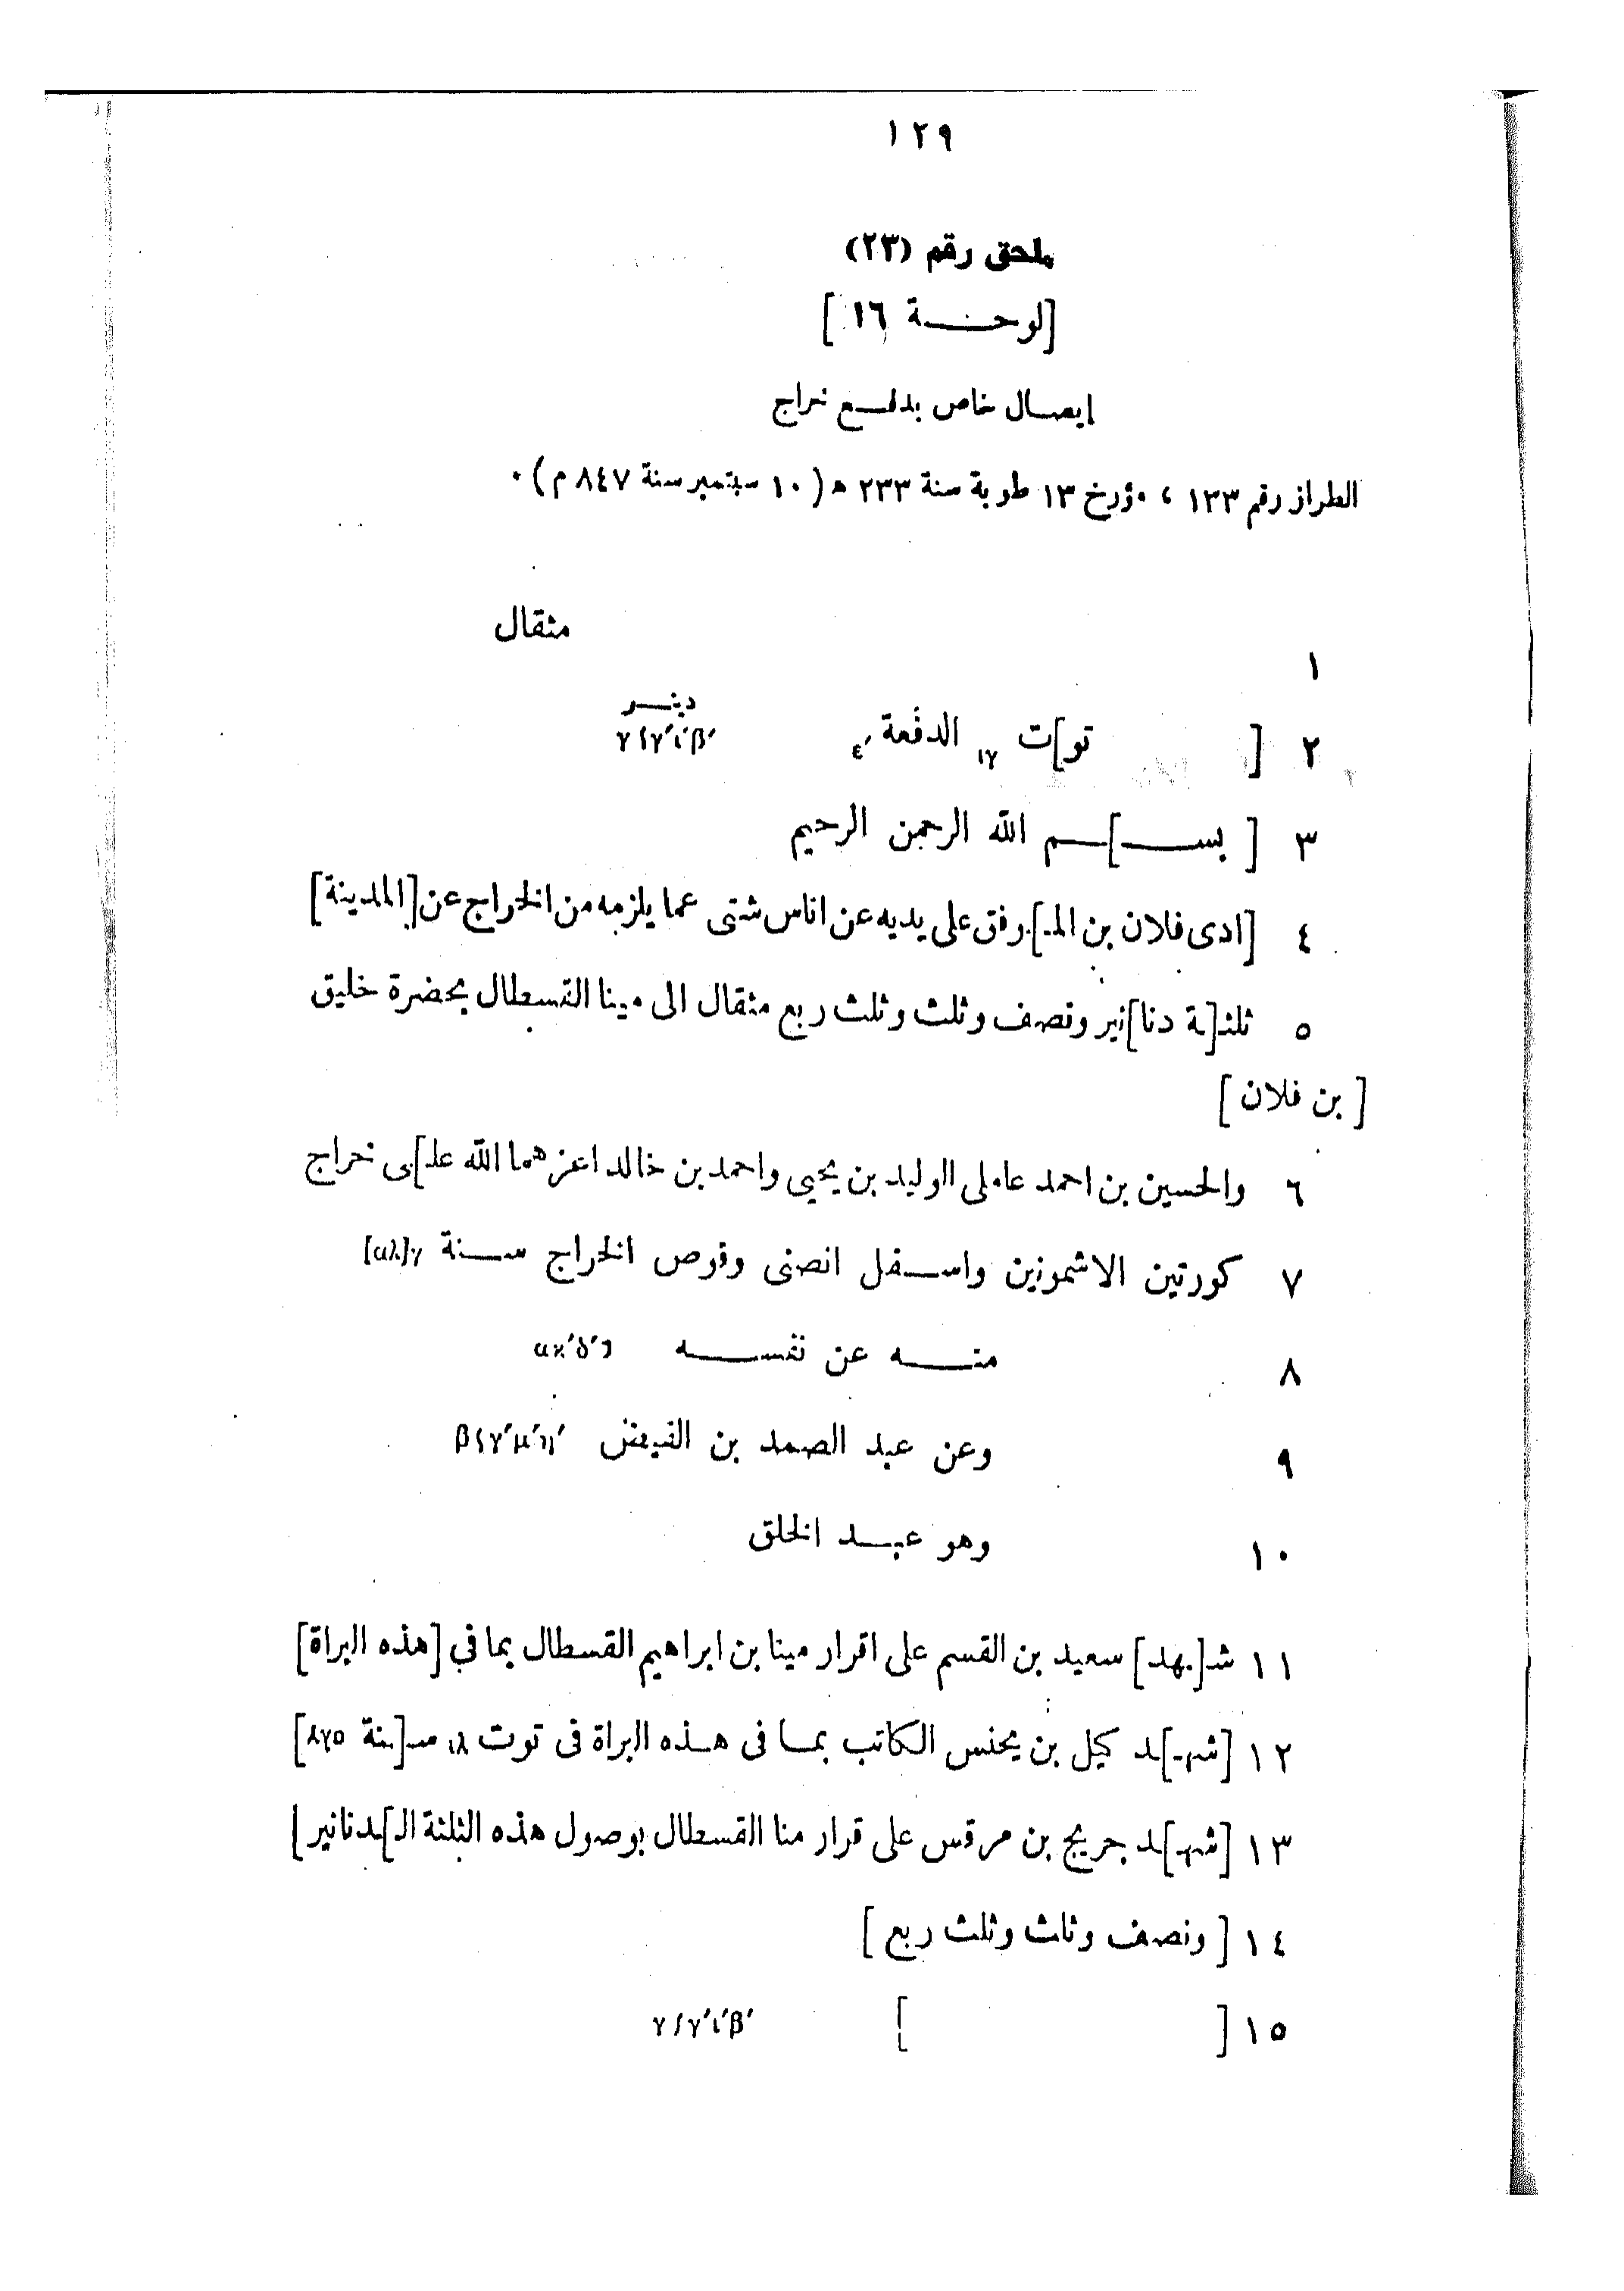 ١٢٩
ملحق رقم (٢٣)
[لوحة ١٦]
إيصال خاص بدفع خراج
الطراز رقم ١٣٣ ، مؤرخ ١٣ طوبة سنة ٢٣٣ ھ (١٠ سبتمبر سنة ٨٤٧ م) .
١ مثقال
دينر
٢ [ تو]ت ιγ الدفعة ε′ γ∫γ′ι′β′
٣ [بســ]ـم الله الرحمن الرحيم
٤ [ادى فلان بن المـ]ـرفق على يديه عن اناس شتى عما يلزمه من الخراج عن [المدينة]
٥ ثلثـ[ـة دنا]نير ونصف وثلث وثلث ربع مثقال الى مينا القسطال بحضرة خليق
[بن فلان]
٦ والحسين بن احمد عاملى الوليد بن يحيى واحمد بن خالد اعزهما الله علـ]ـى خراج
٧ كورتين الاشمونين واسفل انصنى وقوص الخراج سنة [αλ]γ
٨ منه عن نفسه
٩ وعن عبد الصمد بن الفيض
١٠ وهو عبد الخلق
١١ شـ[ـهد] سعيد بن القسم على اقرار مينا بن ابراهيم القسطال بما في [هذه البراة]
١٢ [شهـ]ـد كيل بن يحنس الكاتب بما فى هذه البراة فى توت سـ[ـنة
١٣ [شهـ]ـد جريج بن مرقس على قرار منا القسطال بوصول هذه الثلثة الـ]ـدنانير]
١٤ [ونصف وثلث وثلث ربع]
١٥ [ ] γ∫γ′ι′β′